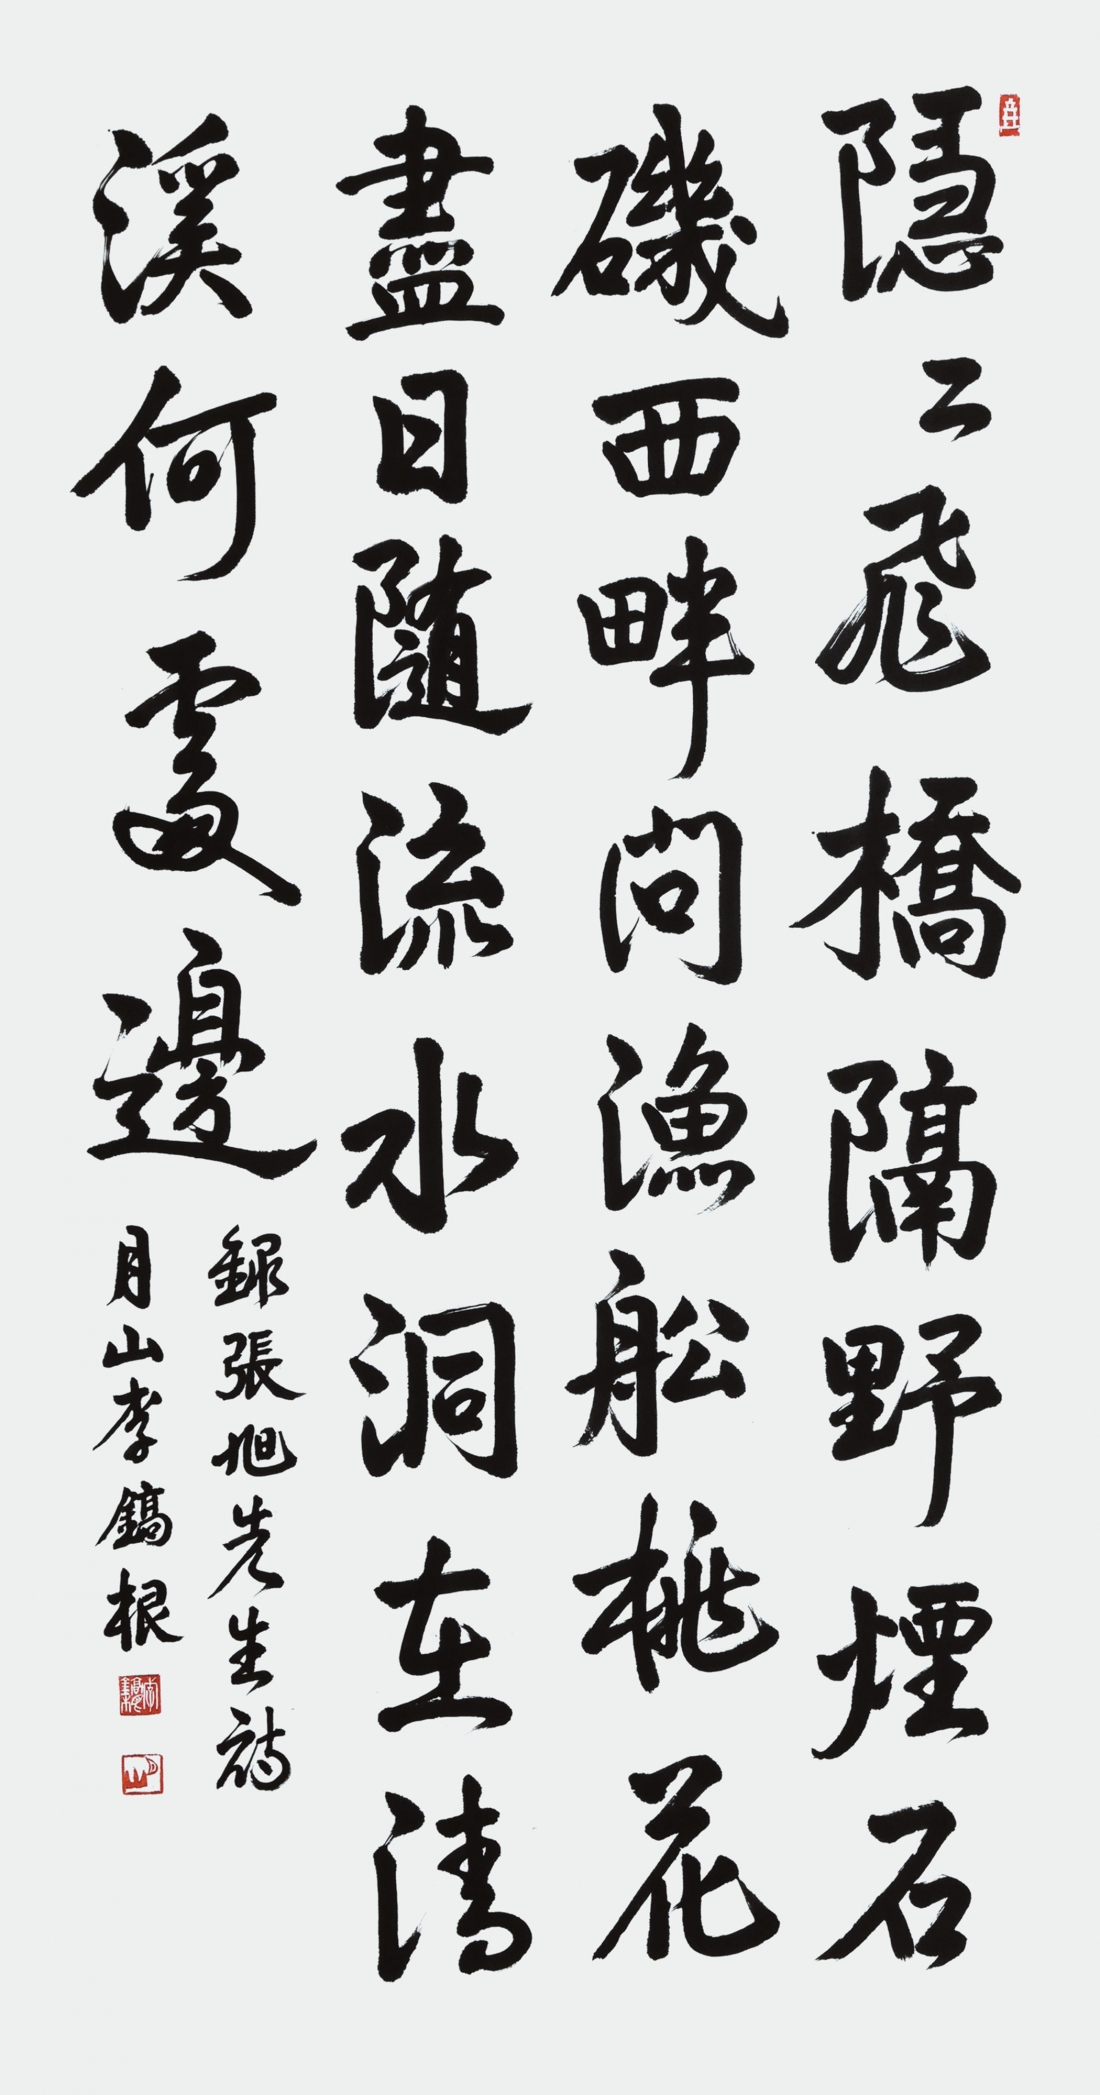 隱〻飛橋隔野煙石
磯西畔問漁船桃花
盡日隨流水洞在清
溪何處邊
錄張旭先生詩
月山李鎬根